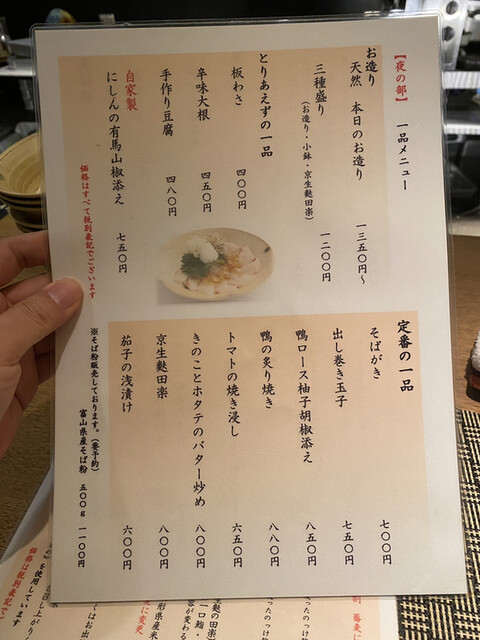 【夜の部】 一品メニュー
お造り
天然 本日のお造り 一三五〇円～
三種盛り 一二〇〇円
(お造り・小鉢・京生麩田楽)
とりあえずの一品
板わさ 四〇〇円
辛味大根 四五〇円
手作り豆腐 四八〇円
自家製
にしんの有馬山椒添え 七五〇円
価格はすべて税別表記でございます
定番の一品
そばがき 七〇〇円
出し巻き玉子 七五〇円
鴨ロース柚子胡椒添え 八五〇円
鴨の炙り焼き 八八〇円
トマトの焼き浸し 六五〇円
きのことホタテのバター炒め 八〇〇円
京生麩田楽 八〇〇円
茄子の浅漬け 六〇〇円
※そば粉販売しております。(要予約)
富山県産そば粉 五〇〇g 一一〇〇円